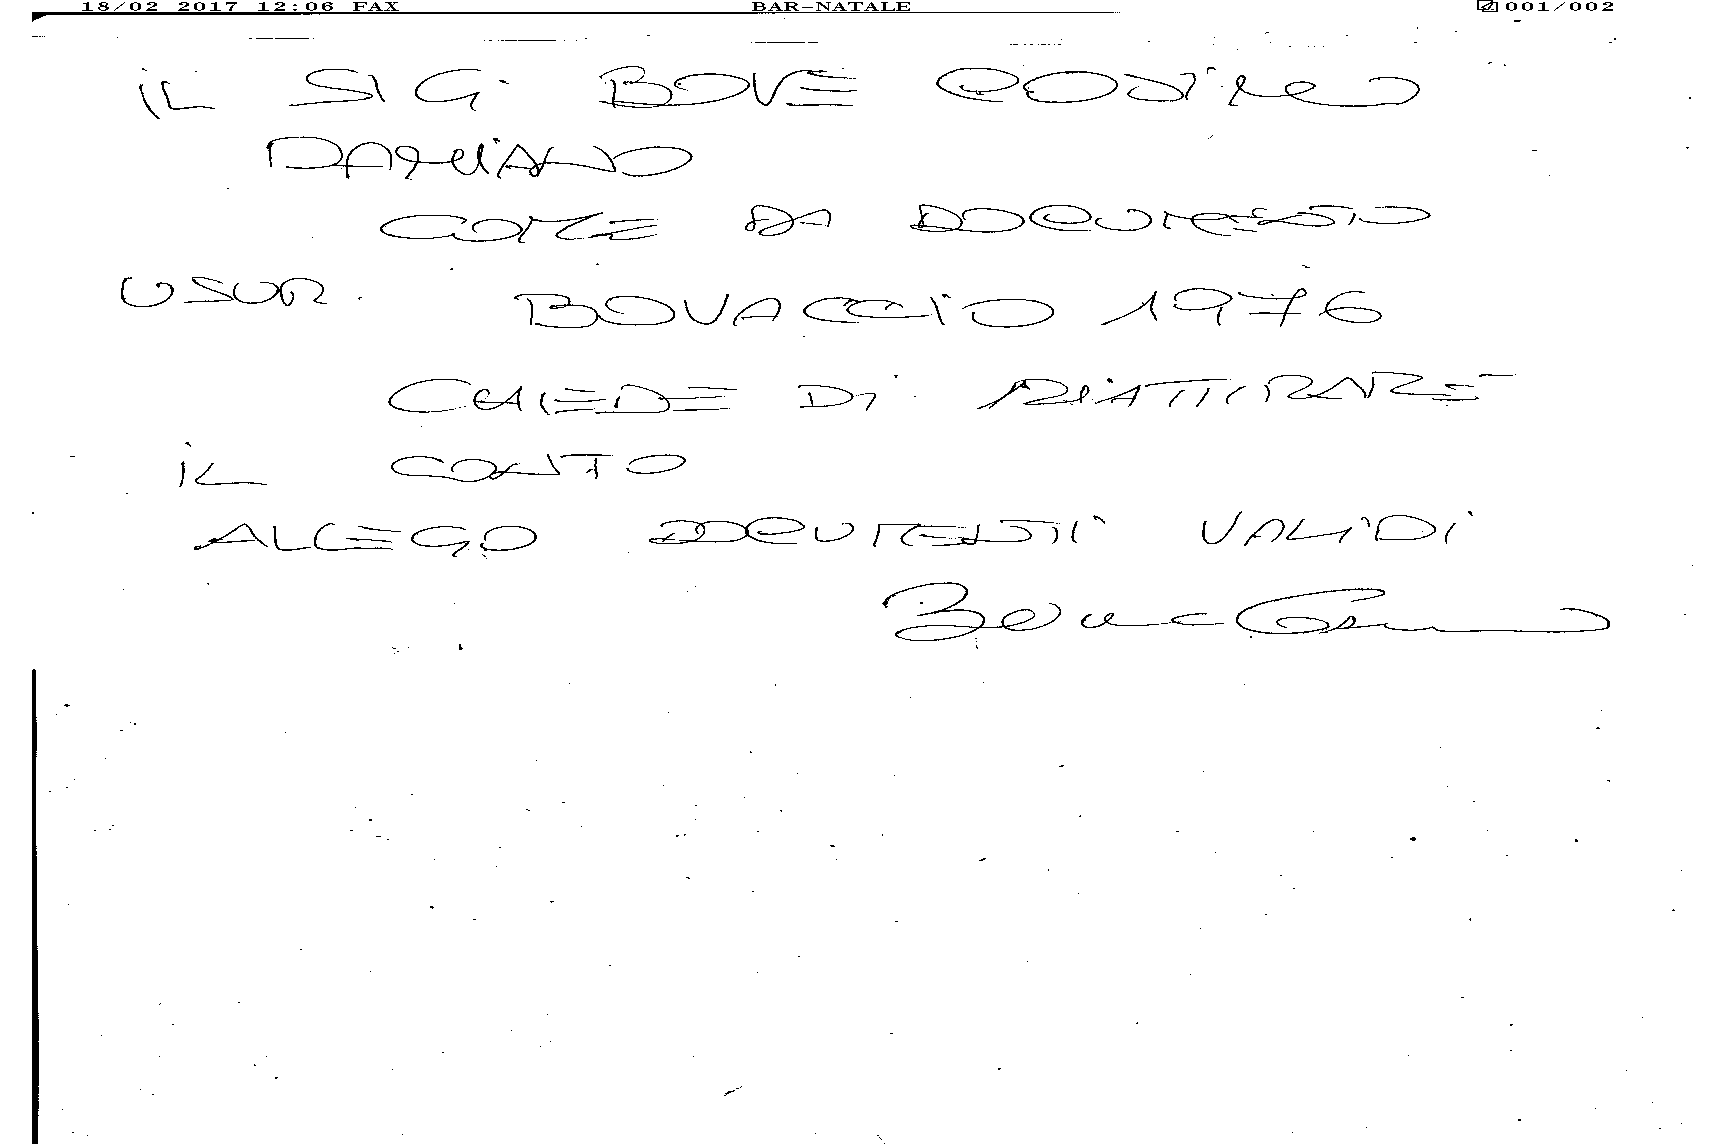 18/02 2017 12:06 FAX BAR-NATALE 001/002
IL SIG. BOVE COSIMO
DAMIANO
COME DA DOCUMENTO
USUR. BOVACCIO 1976
CHIEDE DI RIATTIRARE
IL CONTO
ALLEGO DOCUMENTI VALIDI
Bove Cosimo